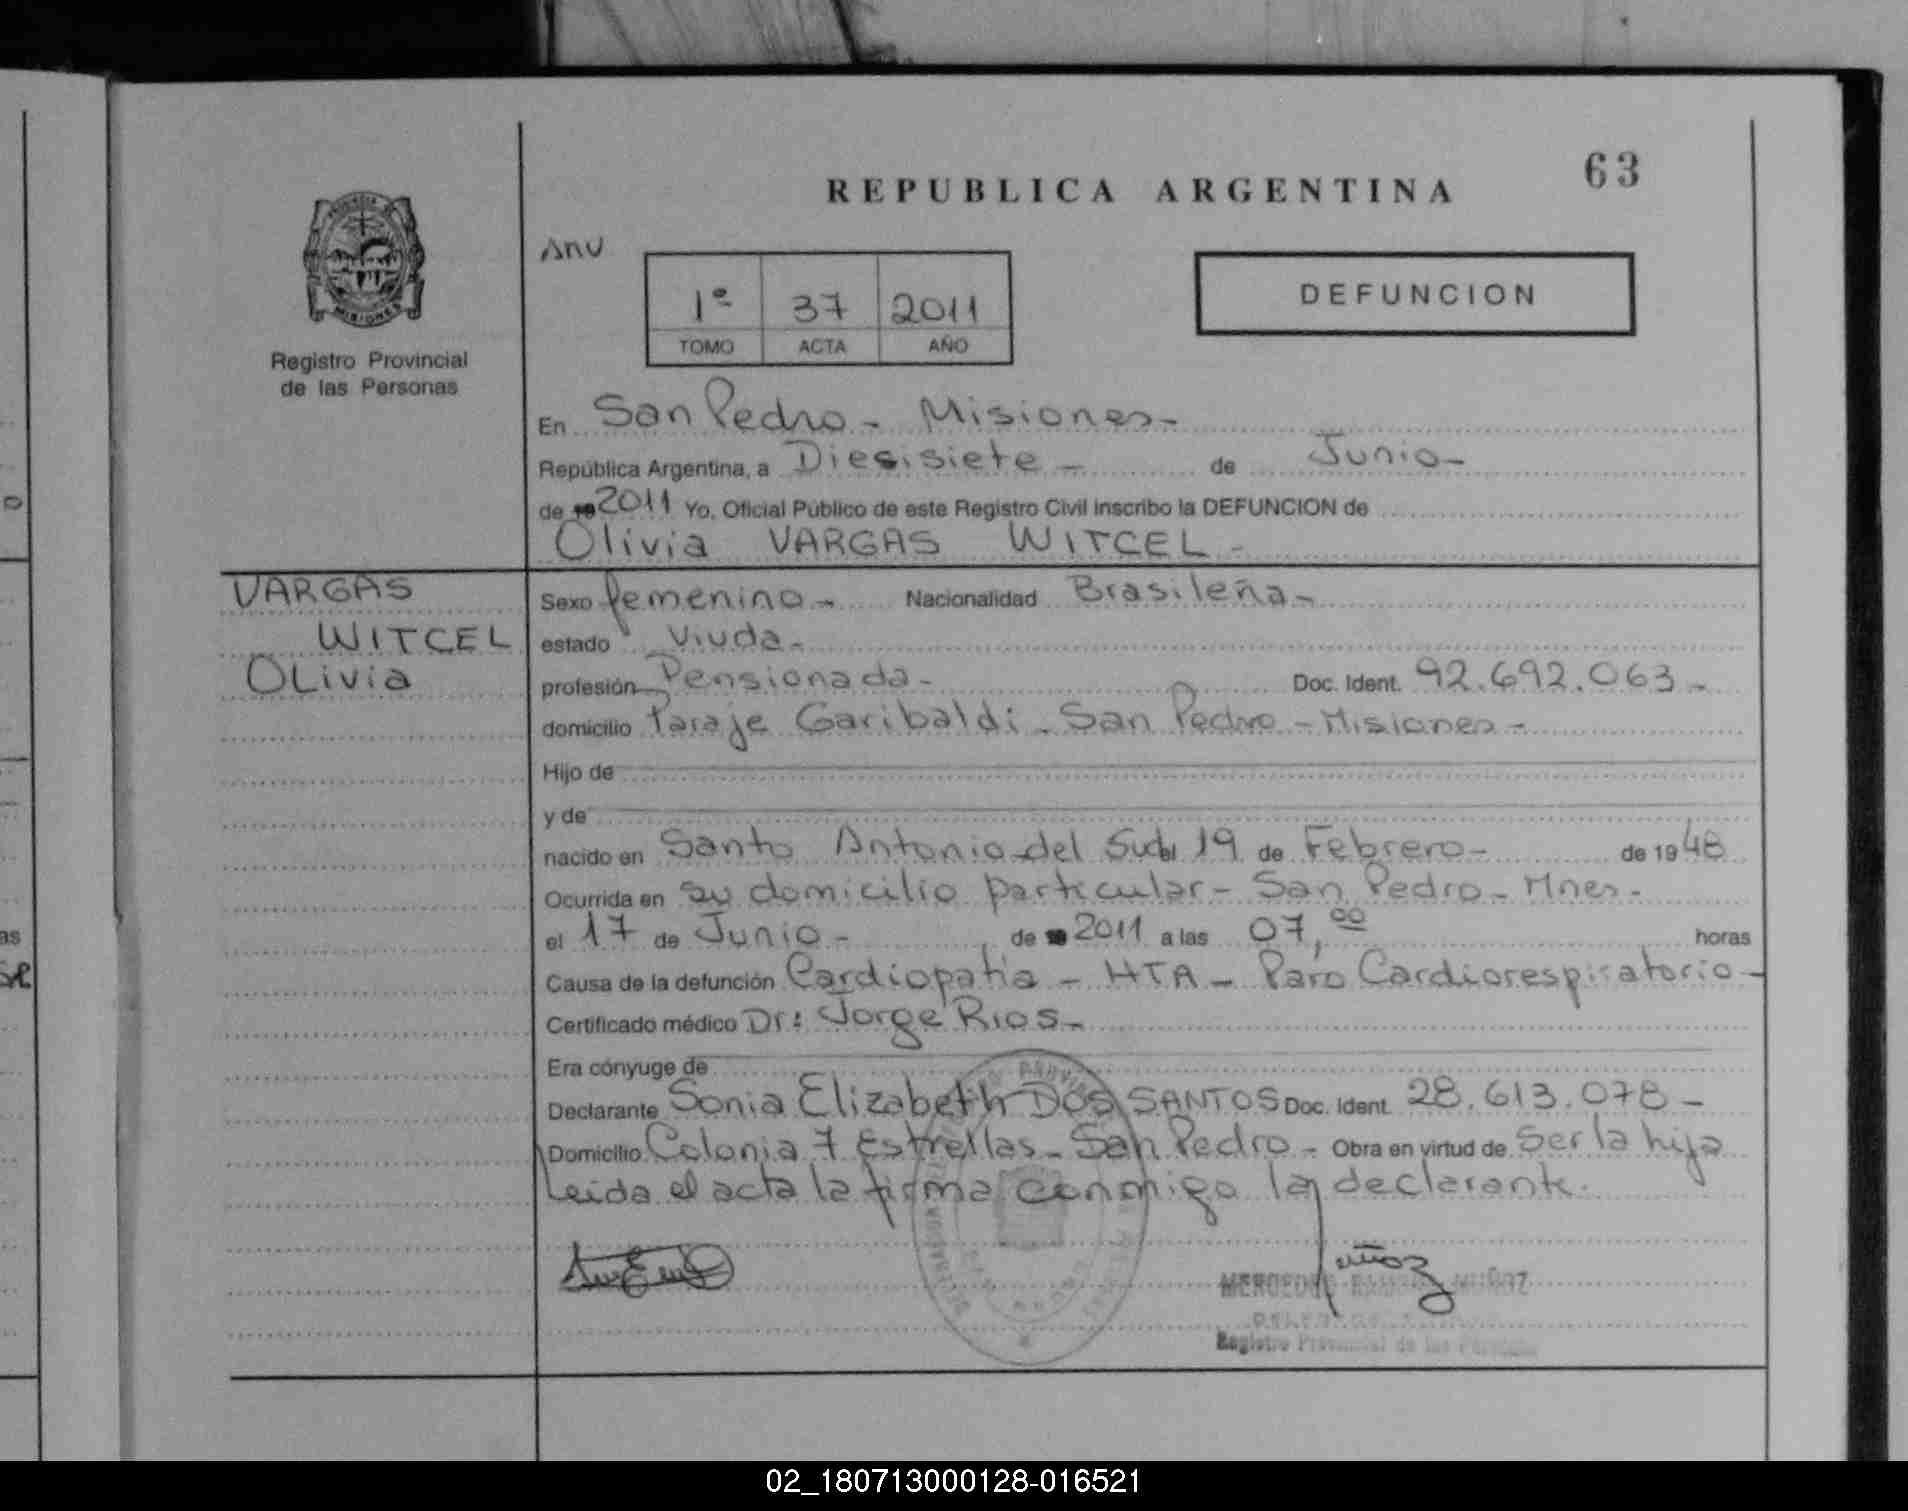 63
REPUBLICA ARGENTINA
PROVINCIA DE
MISIONES
Registro Provincial
de las Personas
1º 37 2011
TOMO ACTA AÑO
DEFUNCION
En San Pedro - Misiones -
República Argentina, a Diesisiete - de Junio -
de 19 2011 Yo, Oficial Público de este Registro Civil inscribo la DEFUNCION de
Olivia VARGAS WITCEL -
VARGAS
WITCEL
OLivia
Sexo femenino - Nacionalidad Brasileña -
estado Viuda -
profesión Pensionada - Doc. Ident. 92.692.063 -
domicilio Paraje Garibaldi - San Pedro - Misiones -
Hijo de
y de
nacido en Santo Antonio del Sud el 19 de Febrero - de 1948
Ocurrida en su domicilio particular - San Pedro - Mnes -
el 17 de Junio - de 19 2011 a las 07,00 horas
Causa de la defunción Cardiopatia - HTA - Paro Cardiorespiratorio -
Certificado médico Dr: Jorge Rios -
Era cónyuge de
Declarante Sonia Elizabeth DOS SANTOS Doc. Ident. 28.613.078 -
Domicilio Colonia 7 Estrellas - San Pedro - Obra en virtud de Ser la hija
Leida el acta la firma conmigo la declarante.
MUÑOZ
Registro Provincial de las Personas
02_180713000128-016521